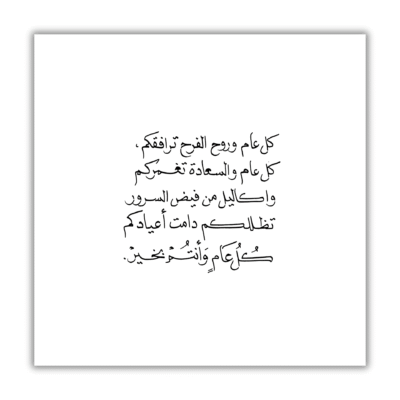 كل عام وروح الفرح ترافقكم،
كل عام والسعادة تغمركم
واكاليل من فيض السرور
تظللكم دامت أعيادكم
كُل عَامٍ وَأنتُمْ بخيرْ.